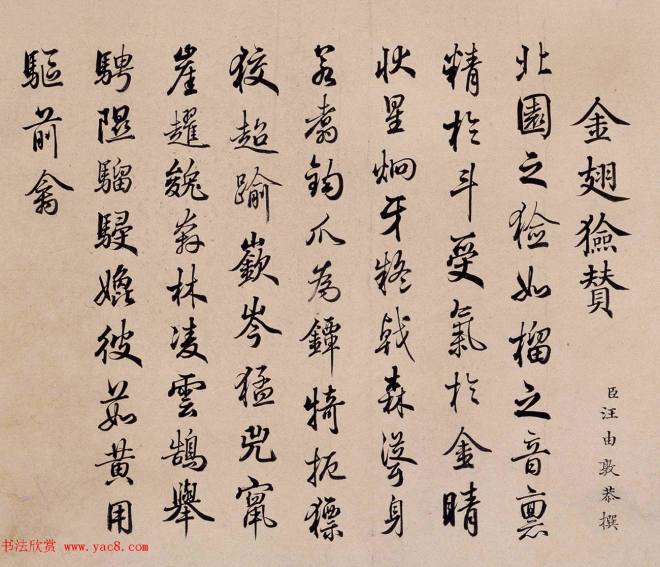 金翅獫贊
臣汪由敦恭撰
北園之獫如榴之音稟
精於斗受氣於金睛
狀星炯牙將戟森聳身
若翥鉤爪為鐔犄扼猱
狡超踰嶔岑猛兕竄
崖趯㕙奔林凌雲鵠舉
騁隰騮駸嫓彼茹黃用
驅前禽
书法欣赏 www.yac8.com